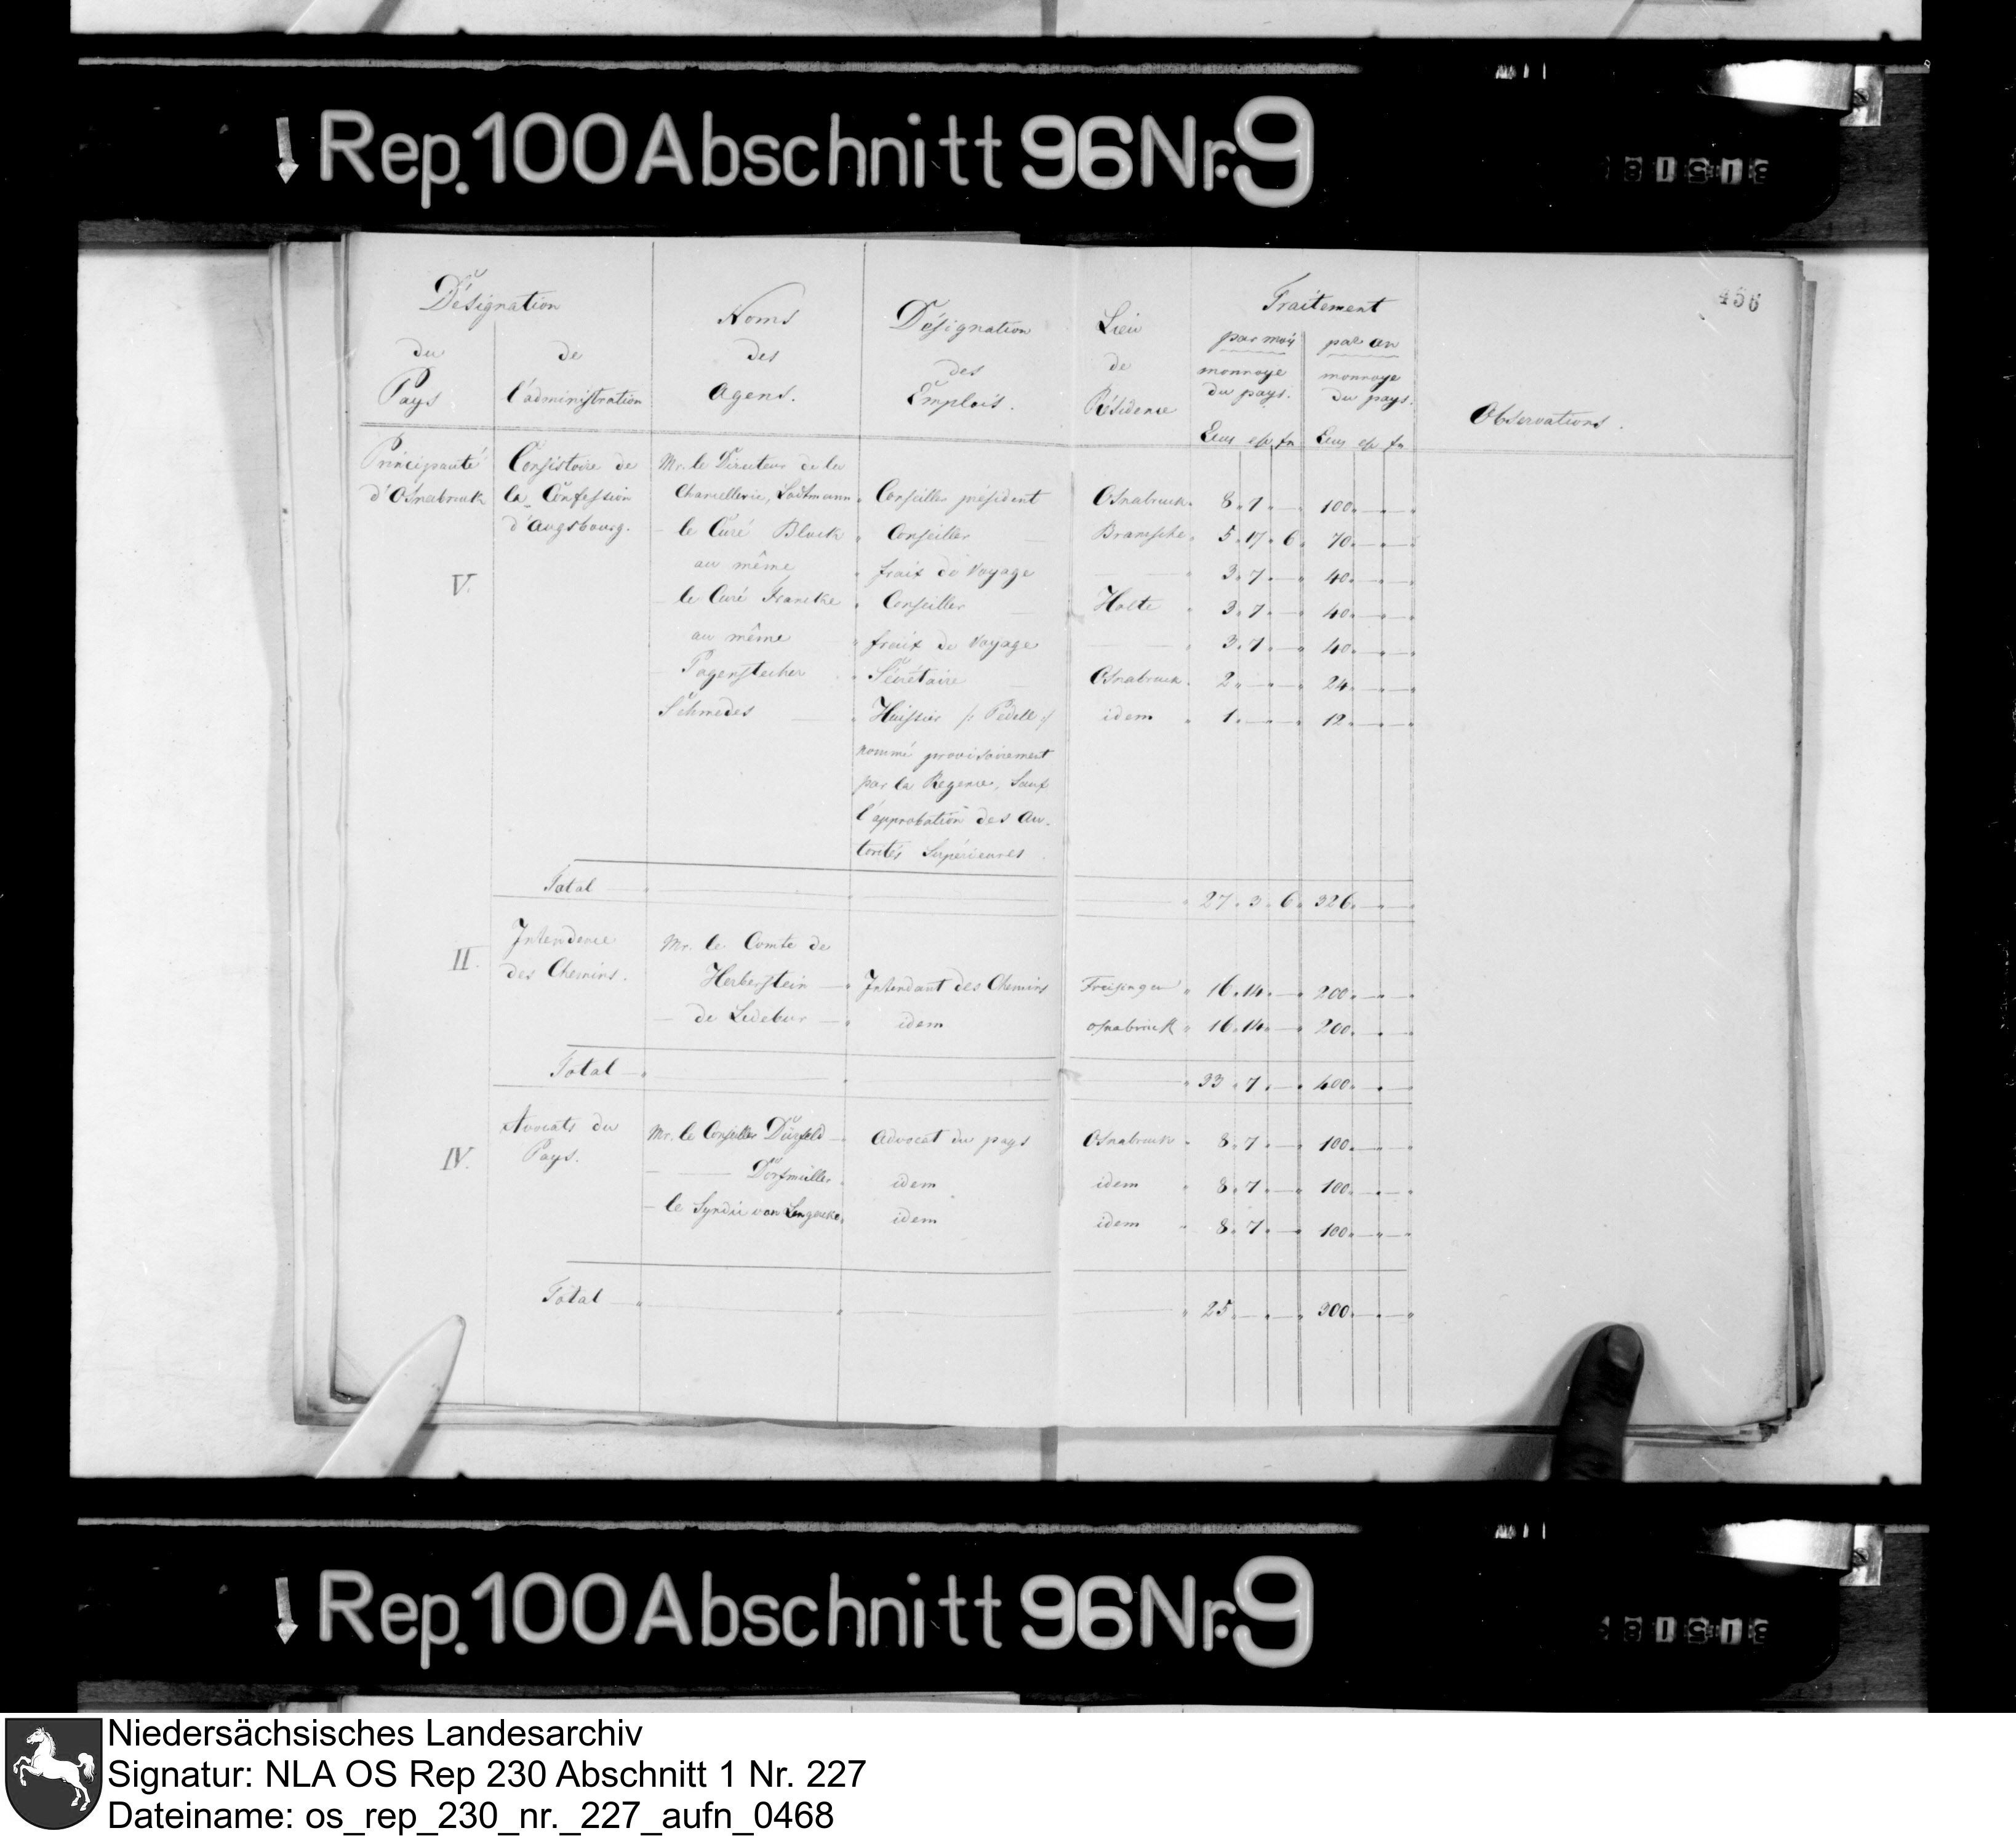 Rep. 100 Abschnitt 96 Nr. 9
456
Désignation
du Pays
de l'administration
Noms des Agens.
Désignation des Emplois.
Lieu de Résidence
Traitement
par mois monnoye du pays.
par an monnoye du pays.
Observations.
Principauté Consistoire de Mr. le Directeur de la
d'Osnabruck la Confession Chancellerie, Lodtmann Conseiller président Osnabruck. 8. 7. — 100. — —
d'Augsbourg. — le Curé Block Conseiller — Bramsche. 5. 17. 6. 70. — —
au même frais de Voyage — — 3. 7. — 40. — —
V. — le Curé Francke Conseiller — Holte 3. 7. — 40. — —
au même — frais de Voyage — — 3. 7. — 40. — —
— Pagenstecher Sécrétaire — Osnabruck. 2. — — 24. — —
Schmedes — Huissier /: Pedell :/ idem 1. — — 12. — —
nommé provisoirement
par la Regence, Sauf
l'approbation des Au-
torités Supérieures
Total — 27. 3. 6. 326. — —
II. Intendence Mr. le Comte de
des Chemins. Herberstein — Intendant des Chemins 16. 14. — 200. — —
— de Ledebur — idem Osnabrück 16. 14. — 200. — —
Total — 33. 7. — 400. — —
Avocats du Mr. le Conseiller Dürfeld — Advocat du pays Osnabruck 8. 7. — 100. — —
IV. Pays. — — Dörfmüller. idem idem 8. 7. — 100. — —
— le Syndic von Lengerke. idem idem 8. 7. — 100. — —
Total — 25. — — 300. — —
Rep. 100 Abschnitt 96 Nr. 9
Niedersächsisches Landesarchiv
Signatur: NLA OS Rep 230 Abschnitt 1 Nr. 227
Dateiname: os_rep_230_nr._227_aufn_0468